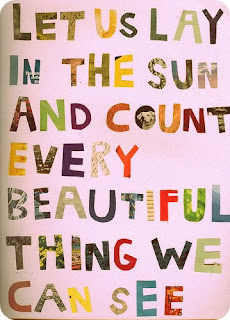 LET US LAY
IN THE SUN
AND COUNT
EVERY
BEAUTIFUL
THING WE
CAN SEE